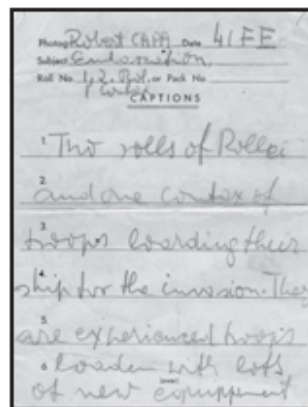 Photog Robert CAPA Date 41FE
Subject Embarcation
Roll No. 1, 2, Rol. or Pack No
1 Contax
CAPTIONS
1. Two rolls of Rollei
2. and one contax of
3. troops loarding their
4. ship for the invasion. They
5. are experienced troops
6. loaden with lots
(over)
of new equippment